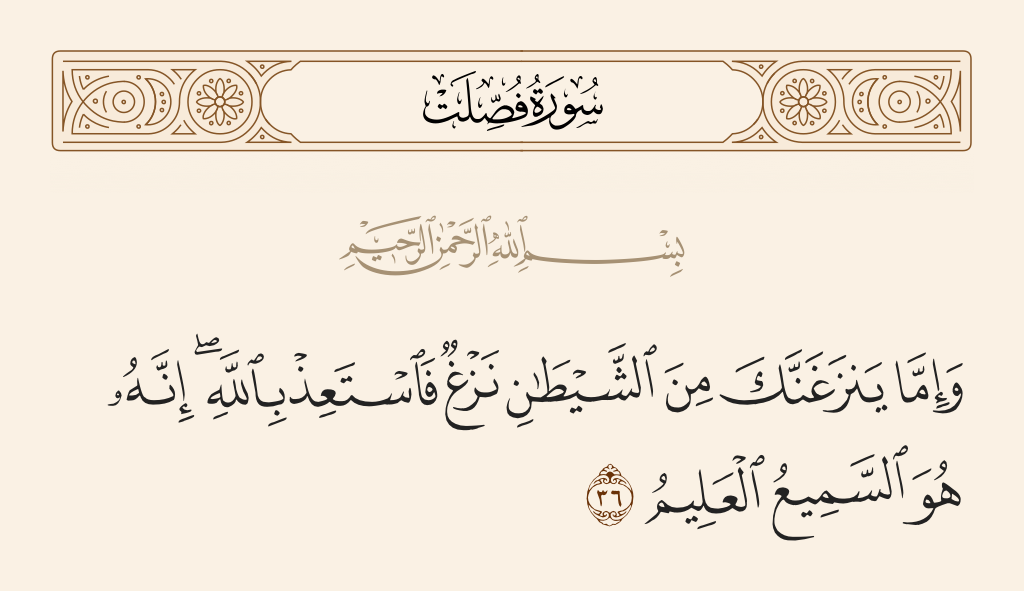 سُورَةُ فُصِّلَتْ
بِسْمِ ٱللَّهِ ٱلرَّحْمَٰنِ ٱلرَّحِيمِ
وَإِمَّا يَنزَغَنَّكَ مِنَ ٱلشَّيْطَٰنِ نَزْغٌ فَٱسْتَعِذْ بِٱللَّهِ ۖ إِنَّهُۥ
هُوَ ٱلسَّمِيعُ ٱلْعَلِيمُ ٣٦